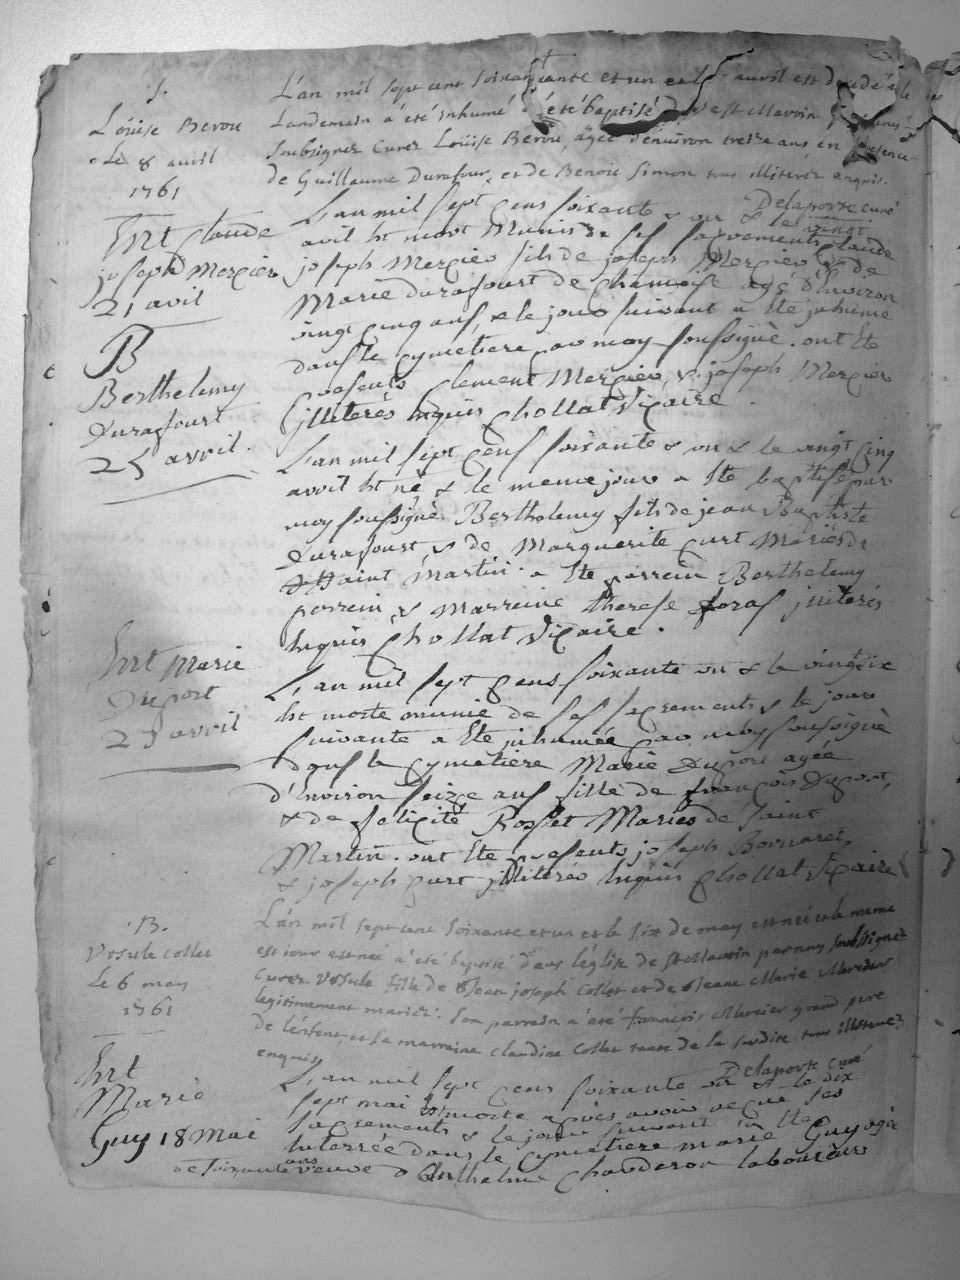 .S.
Loüise Berou
Le 8 avril
1761
L'an mil sept cent Soixante et un avril est décédé et le
Landemain à été inhumé été baptisé
Soubsigner Curez Loüise Berou, agee d'environ treize ans en presence
de Guillaume Durafour, et de Benoit Simon tous illiterez enquis.
Delaporte curé
Ent Claude
joseph Mercier
21 avril
L'an mil sept cens soixante & un & le vingt
avil est mort Munis de ses sacrements Claude
joseph Mercier fils de joseph Mercier & de
Marie durafourt de agé d'environ
vingt cinq ans, & le jour suivant a ete inhumé
dans le cymetiere par moy soussigné. ont ete
presents Clement Mercier, & joseph Mercier
illiterés enquis Chollat Vicaire
B
Berthelemy
Durafourt
25 avril.
L'an mil sept cens soixante & un & le vingt cinq
avril est né & le meme jour a ete baptisé par
moy soussigné Berthelemy fils de jean Baptiste
durafourt, & de Marguerite Curt Mariés de
Saint Martin. a ete parrein Berthelemy
perrein, & Marreine therese foras illiterés
enquis Chollat Vicaire.
Ent Marie
Duport
25 avril
L'an mil sept cens soixante un & le vingtsix
est morte munie de ses sacrements & le jour
suivante a ete inhumée par moy soussigné
dans le cymetiere Marie Duport agée
d'Environ seize ans fille de françois Duport,
& de felicité Rosset Mariés de Saint
Martin. ont ete presents joseph
& joseph Curt illiterés enquis Chollat Vicaire
.B.
Ursule Collet
Le 6 may
1761
L'an mil sept cent Soixante et un et le six de may est née et le meme
est jour est née à été baptisé dans l'église de St Martin par moy soubsigné
Curez Ursule fille de Jean joseph Collet et de Jeanne Marie Mercier
legitimement mariez. Son parrain a été François Mercier grand pere
de l'enfant, et la marraine Claudine Collet tante de la susdite tous illiterez
enquis
Delaporte curé
Ent
Marie
Guy 18 Mai
L'an mil sept cens soixante un & le dix
sept mai est morte apres avoir reçue ses
sacrements & le jour suivant a ete
enterrée dans le cymetiere marie Guy agée
de soixante ans veuve d'Anthelme Chauderon laboureur